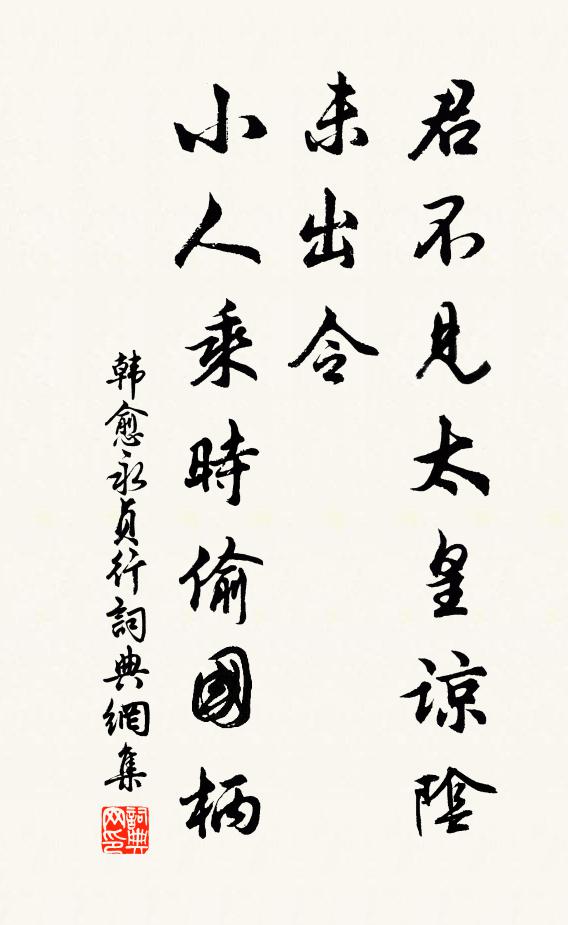 君不見太皇諒陰
未出令
小人乘時偷國柄
韩愈永貞行詞典網集
詞典
网印